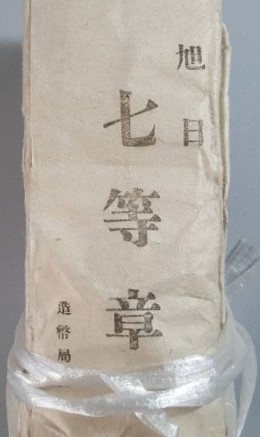 旭日
七等章
造幣局